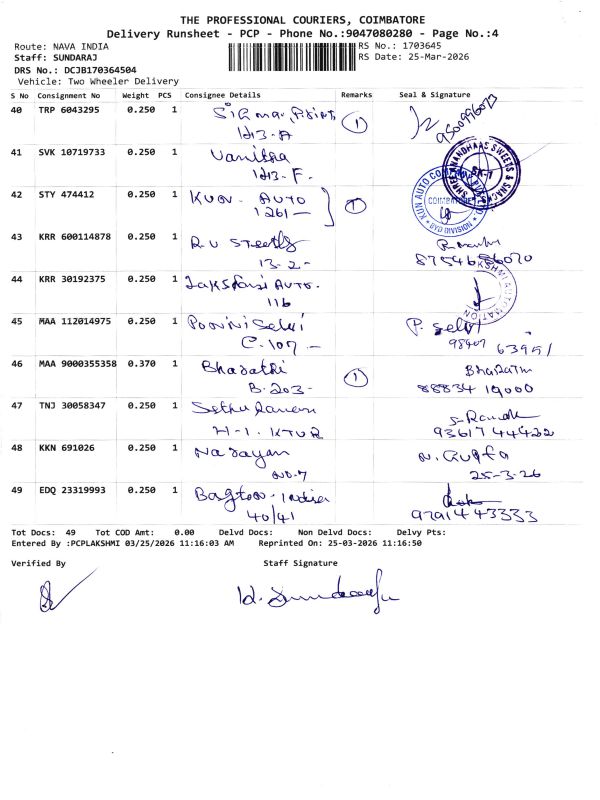 THE PROFESSIONAL COURIERS, COIMBATORE
Delivery Runsheet - PCP - Phone No.:9047080280 - Page No.:4
Route: NAVA INDIA
RS No.: 1703645
Staff: SUNDARAJ
RS Date: 25-Mar-2026
DRS No.: DCJB170364504
Vehicle: Two Wheeler Delivery
S No Consignment No Weight PCS Consignee Details Remarks Seal & Signature
40 TRP 6043295 0.250 1 Sigma 1
1213-A
9500996073
41 SVK 10719733 0.250 1 Vanitha
1213-F.
SHREE ANANDHAAS SWEETS & SNACKS
42 STY 474412 0.250 1 KUN AUTO 1
1261
KUN AUTO COMPANY
COIMBATORE
BYD DIVISION
43 KRR 600114878 0.250 1 R.U Steels
13-2-
44 KRR 30192375 0.250 1 Lakshmi AUTO.
116
LAKSHMI AUTOMATION
45 MAA 112014975 0.250 1 Poorni Selvi P. Selvi
C.107 63951
46 MAA 9000355358 0.370 1 Bharathi 1 Bharathi
B.203- 88834 19000
47 TNJ 30058347 0.250 1
H-1. KTVR 9361744422
48 KKN 691026 0.250 1 Narayan N. Gupta
NO-7 25-3-26
49 EDQ 23319993 0.250 1 India
40/41 9791443333
Tot Docs: 49 Tot COD Amt: 0.00 Delvd Docs: Non Delvd Docs: Delvy Pts:
Entered By :PCPLAKSHMI 03/25/2026 11:16:03 AM Reprinted On: 25-03-2026 11:16:50
Verified By Staff Signature